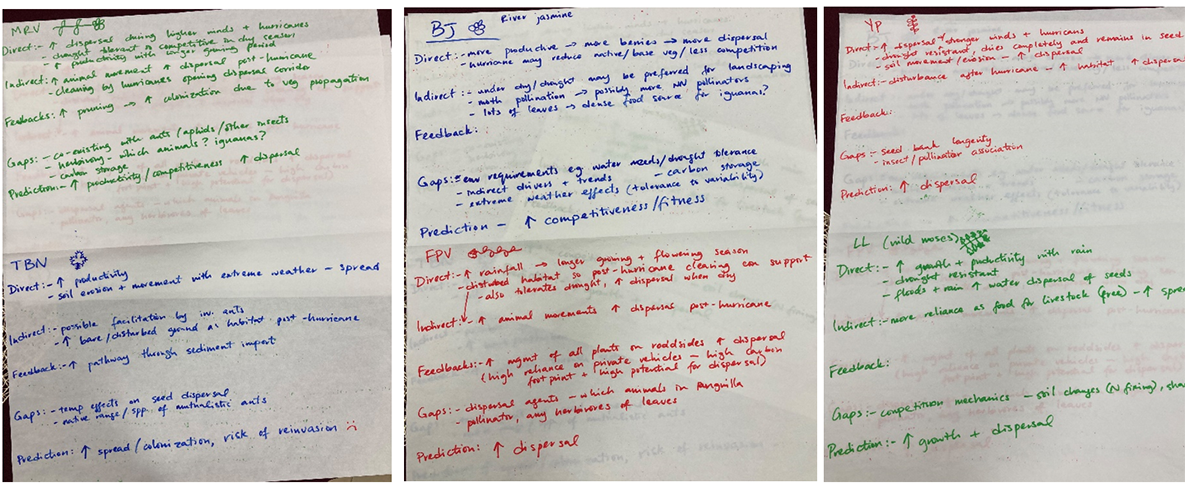 MRV
Direct:- ↑ dispersal during higher winds + hurricanes
- drought tolerant so competitive in dry season
- ↑ productivity with longer growing period
Indirect:- ↑ animal movement ↑ dispersal post-hurricane
- clearing by hurricanes opening dispersal corridor
Feedbacks:- ↑ pruning → ↑ colonization due to veg propagation
Gaps:- co-existing with ants/aphids/other insects
- herbivory - which animals? iguanas?
- carbon storage
Prediction:- ↑ productivity/competitiveness ↑ dispersal
TBN
Direct:- ↑ productivity
- soil erosion + movement with extreme weather - spread
Indirect:- possible facilitation by inv. ants
- ↑ bare/disturbed ground as habitat post-hurricane
Feedback:- ↑ pathway through sediment import
Gaps:- temp effects on seed dispersal
- native range/spp. of mutualistic ants
Prediction: ↑ spread/colonization, risk of reinvasion
BJ River jasmine
Direct:- more productive → more berries → more dispersal
- hurricane may reduce native/base veg/less competition
Indirect:- under dry/drought may be preferred for landscaping
- moth pollination → possibly more NN pollinators
- lots of leaves → dense food source for iguanas?
Feedback:
Gaps:- env requirements eg water needs/drought tolerance
- indirect drivers + trends - carbon storage
- extreme weather effects (+ tolerance to variability)
Prediction - ↑ competitiveness/fitness
FPV
Direct:- ↑ rainfall → longer growing + flowering season
- disturbed habitat so post-hurricane clearing can support
- also tolerates drought, ↑ dispersal when dry
Indirect:- ↑ animal movements ↑ dispersal post-hurricane
Feedbacks:- ↑ mgmt of all plants on roadsides ↑ dispersal
(high reliance on private vehicles - high carbon
footprint + high potential for dispersal)
Gaps:- dispersal agents - which animals in Anguilla
- pollinator, any herbivores of leaves
Prediction: ↑ dispersal
YP
Direct:- ↑ dispersal + stronger winds + hurricans
- drought resistant, dries completely and remains in seed
- soil movement/erosion - ↑ dispersal
Indirect:- disturbance after hurricane - ↑ habitat ↑ dispersal
Feedback:
Gaps:- seed bank longevity
- insect/pollinator association
Prediction: ↑ dispersal
LL (wild moses)
Direct:- ↑ growth + pductivity with rain
- drought resistant
- floods + rain ↑ water dispersal of seeds
Indirect:- more reliance as food for livestock (free) - ↑ spre
Feedback:
Gaps:- competition mechanics - soil changes (N fixing), sha
Prediction:- ↑ growth + dispersal